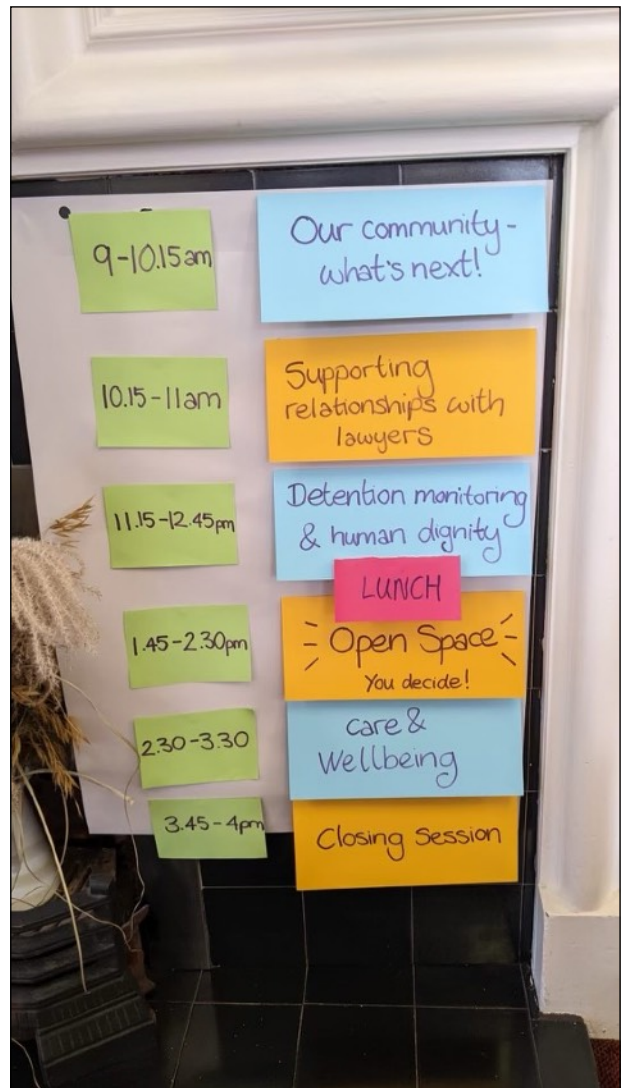 9-10.15am
Our community-
what's next!
10.15-11am
Supporting
relationships with
lawyers
11.15-12.45pm
Detention monitoring
& human dignity
LUNCH
1.45-2.30pm
Open Space
You decide!
2.30-3.30
Care &
Wellbeing
3.45-4pm
Closing Session